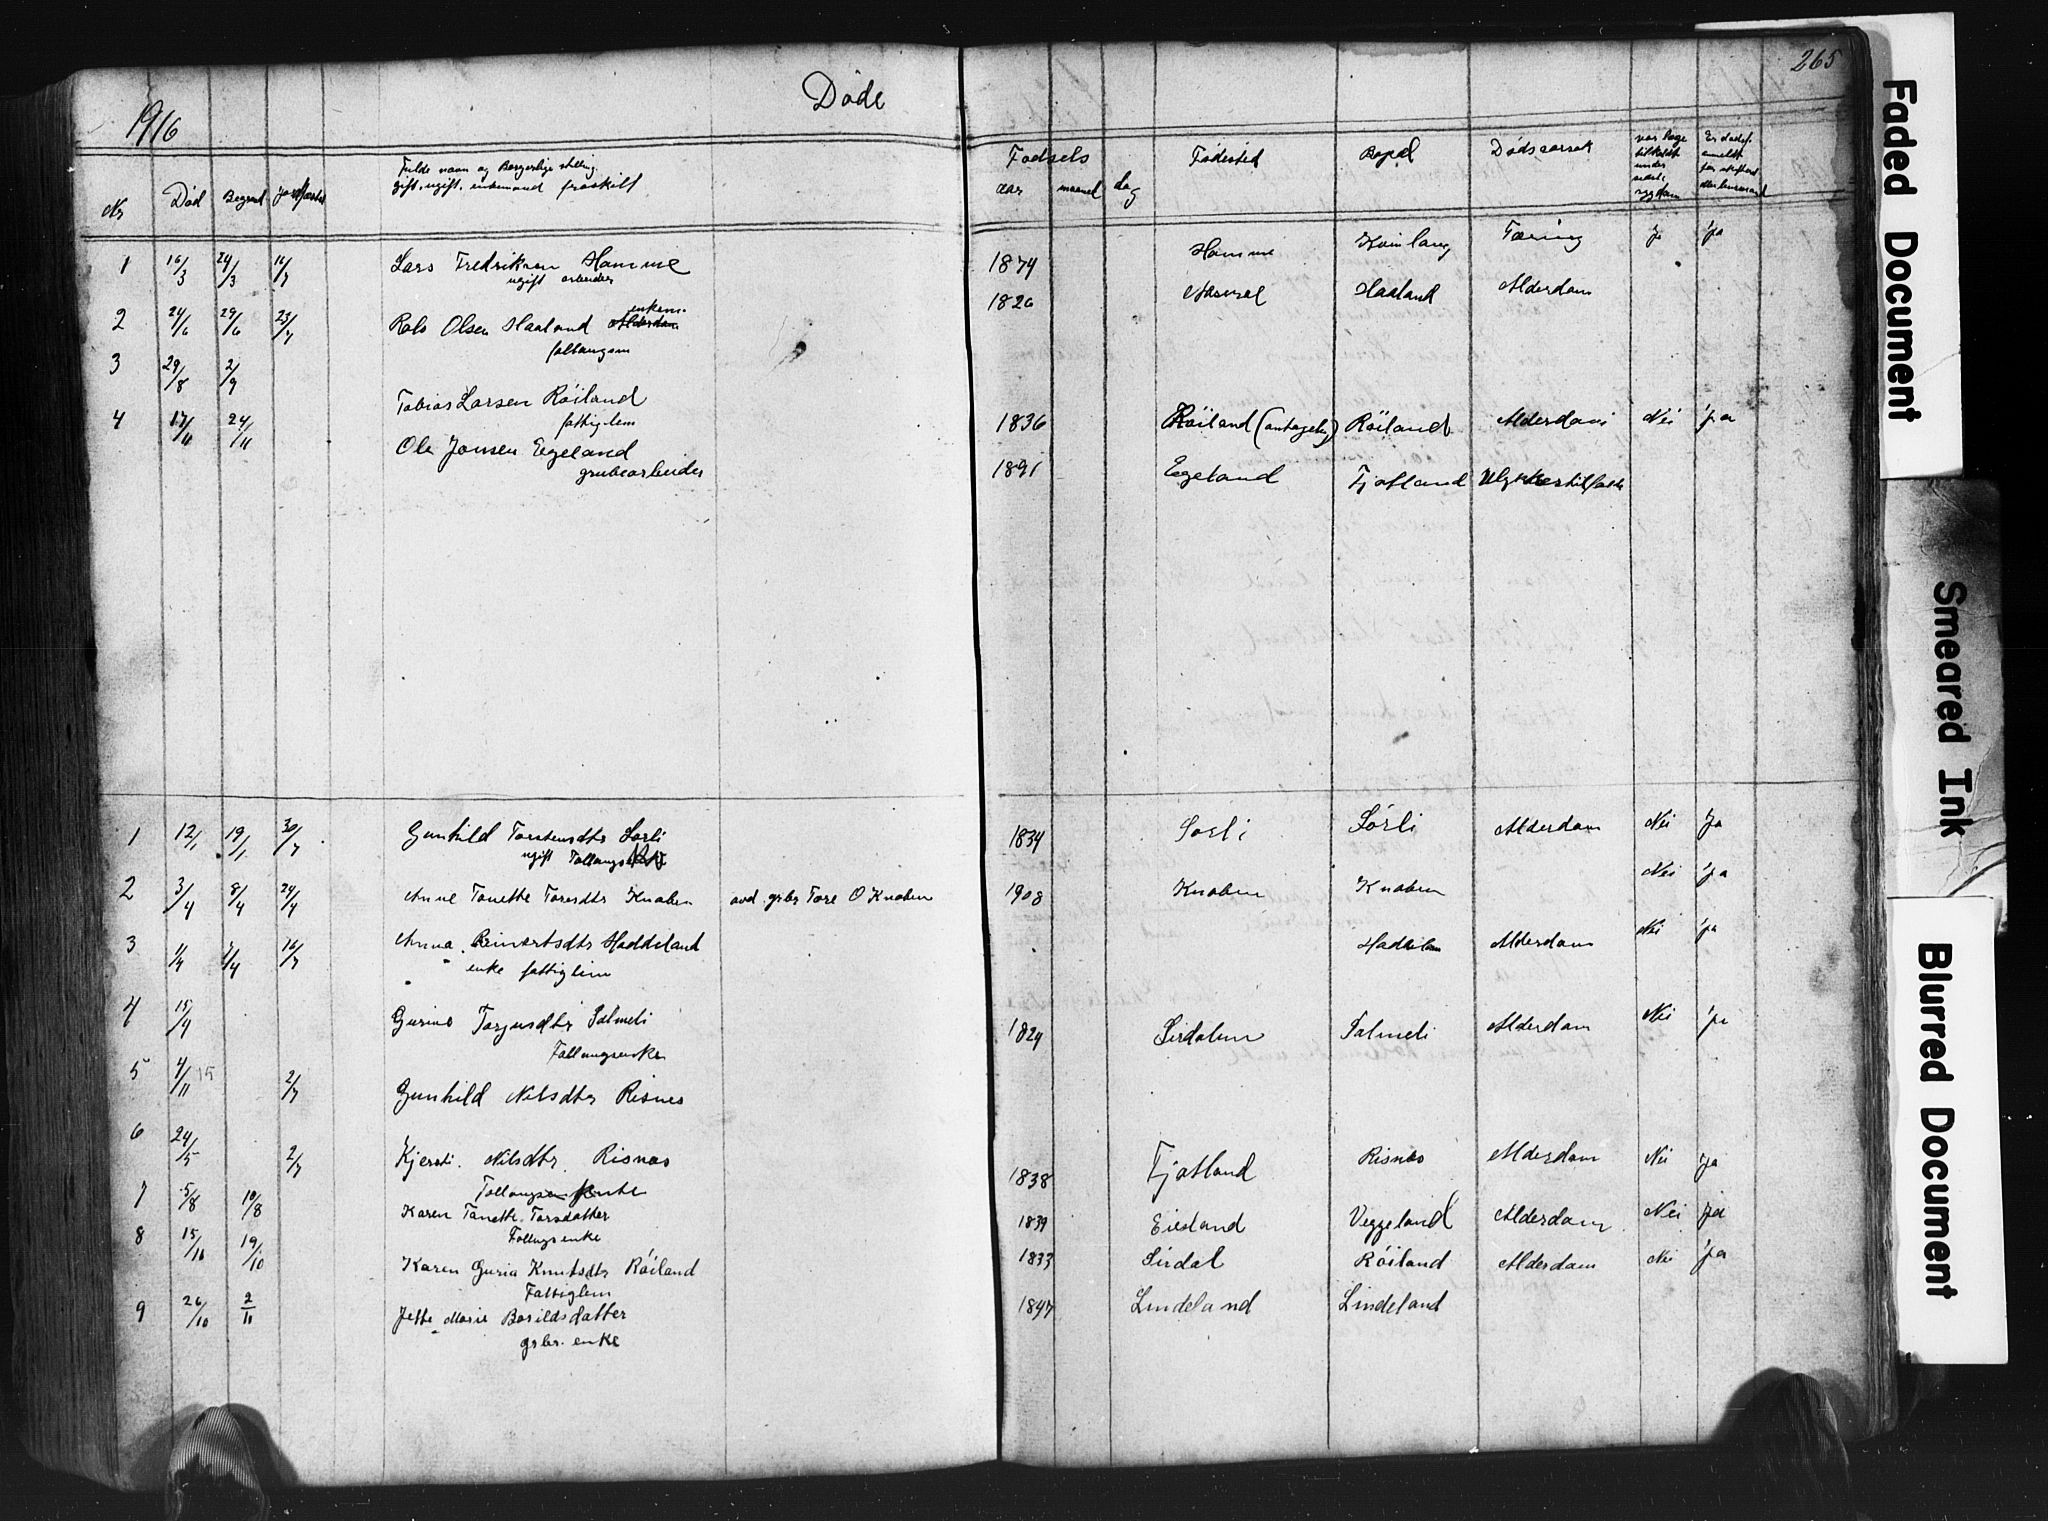 Døde
265
1916
Nr Død Begravet jordfæstet
Fulde navn og Borgerlige stilling
gift, ugift, enkemand fraskilt
Fødsels aar maaned dag
Fødested Bopæl Dødsaarsak
var læge tilkaldt under sidste sygdom
Er dødsf. anmeldt for skifteret eller lensmand
1 16/3 24/3 16/7 Lars Fredriksen Homme 1874 Homme Kvinlaug Tæring Ja ja
ugift arbeider
2 24/6 29/6 23/7 Rolv Olsen Haaland enkem. Alderdom 1826 Aaseral Haaland Alderdom
follaugsm
3 29/8 2/9 Tobias Larsen Röiland 1836 Röiland (antagelig) Röiland Alderdom Nei ja
fattiglem
4 17/11 24/11 Ole Jonsen Egeland 1891 Egeland Fjotland Ulykkestilfælde
grubearbeider
1 12/1 19/1 30/7 Gunhild Torstensdtr Sørli 1834 Sørli Sørli Alderdom Nei Ja
ugift Follaugs
2 3/4 8/4 24/4 Anne Tonette Toresdtr Knaben avd. grbr Tore O Knaben 1908 Knaben Knaben Nei ja
3 1/4 7/4 16/7 Anna Reinertsdtr Haddeland Haddeland Alderdom Nei ja
enke fattiglem
4 15/4 Gurine Torjusdtr Salmeli 1824 Sirdalen Salmeli Alderdom Nei ja
Follaugsenke
5 4/11 15 2/7 Gunhild Nilsdtr Risnes
6 24/5 2/7 Kjersti Nilsdtr. Risnes 1838 Fjotland Risnes Alderdom Nei ja
Follaugsenke
7 5/8 10/8 Karen Tonette Torsdatter 1839 Eiesland Veggeland Alderdom Nei ja
Follaugsenke
8 15/10 19/10 Karen Guria Knutsdtr Röiland 1833 Sirdal Röiland Alderdom Nei ja
Fattiglem
9 26/10 2/11 Jette Marie Borildsdatter 1847 Lindeland Lindeland
grbr. enke
Faded Document
Smeared Ink
Blurred Document